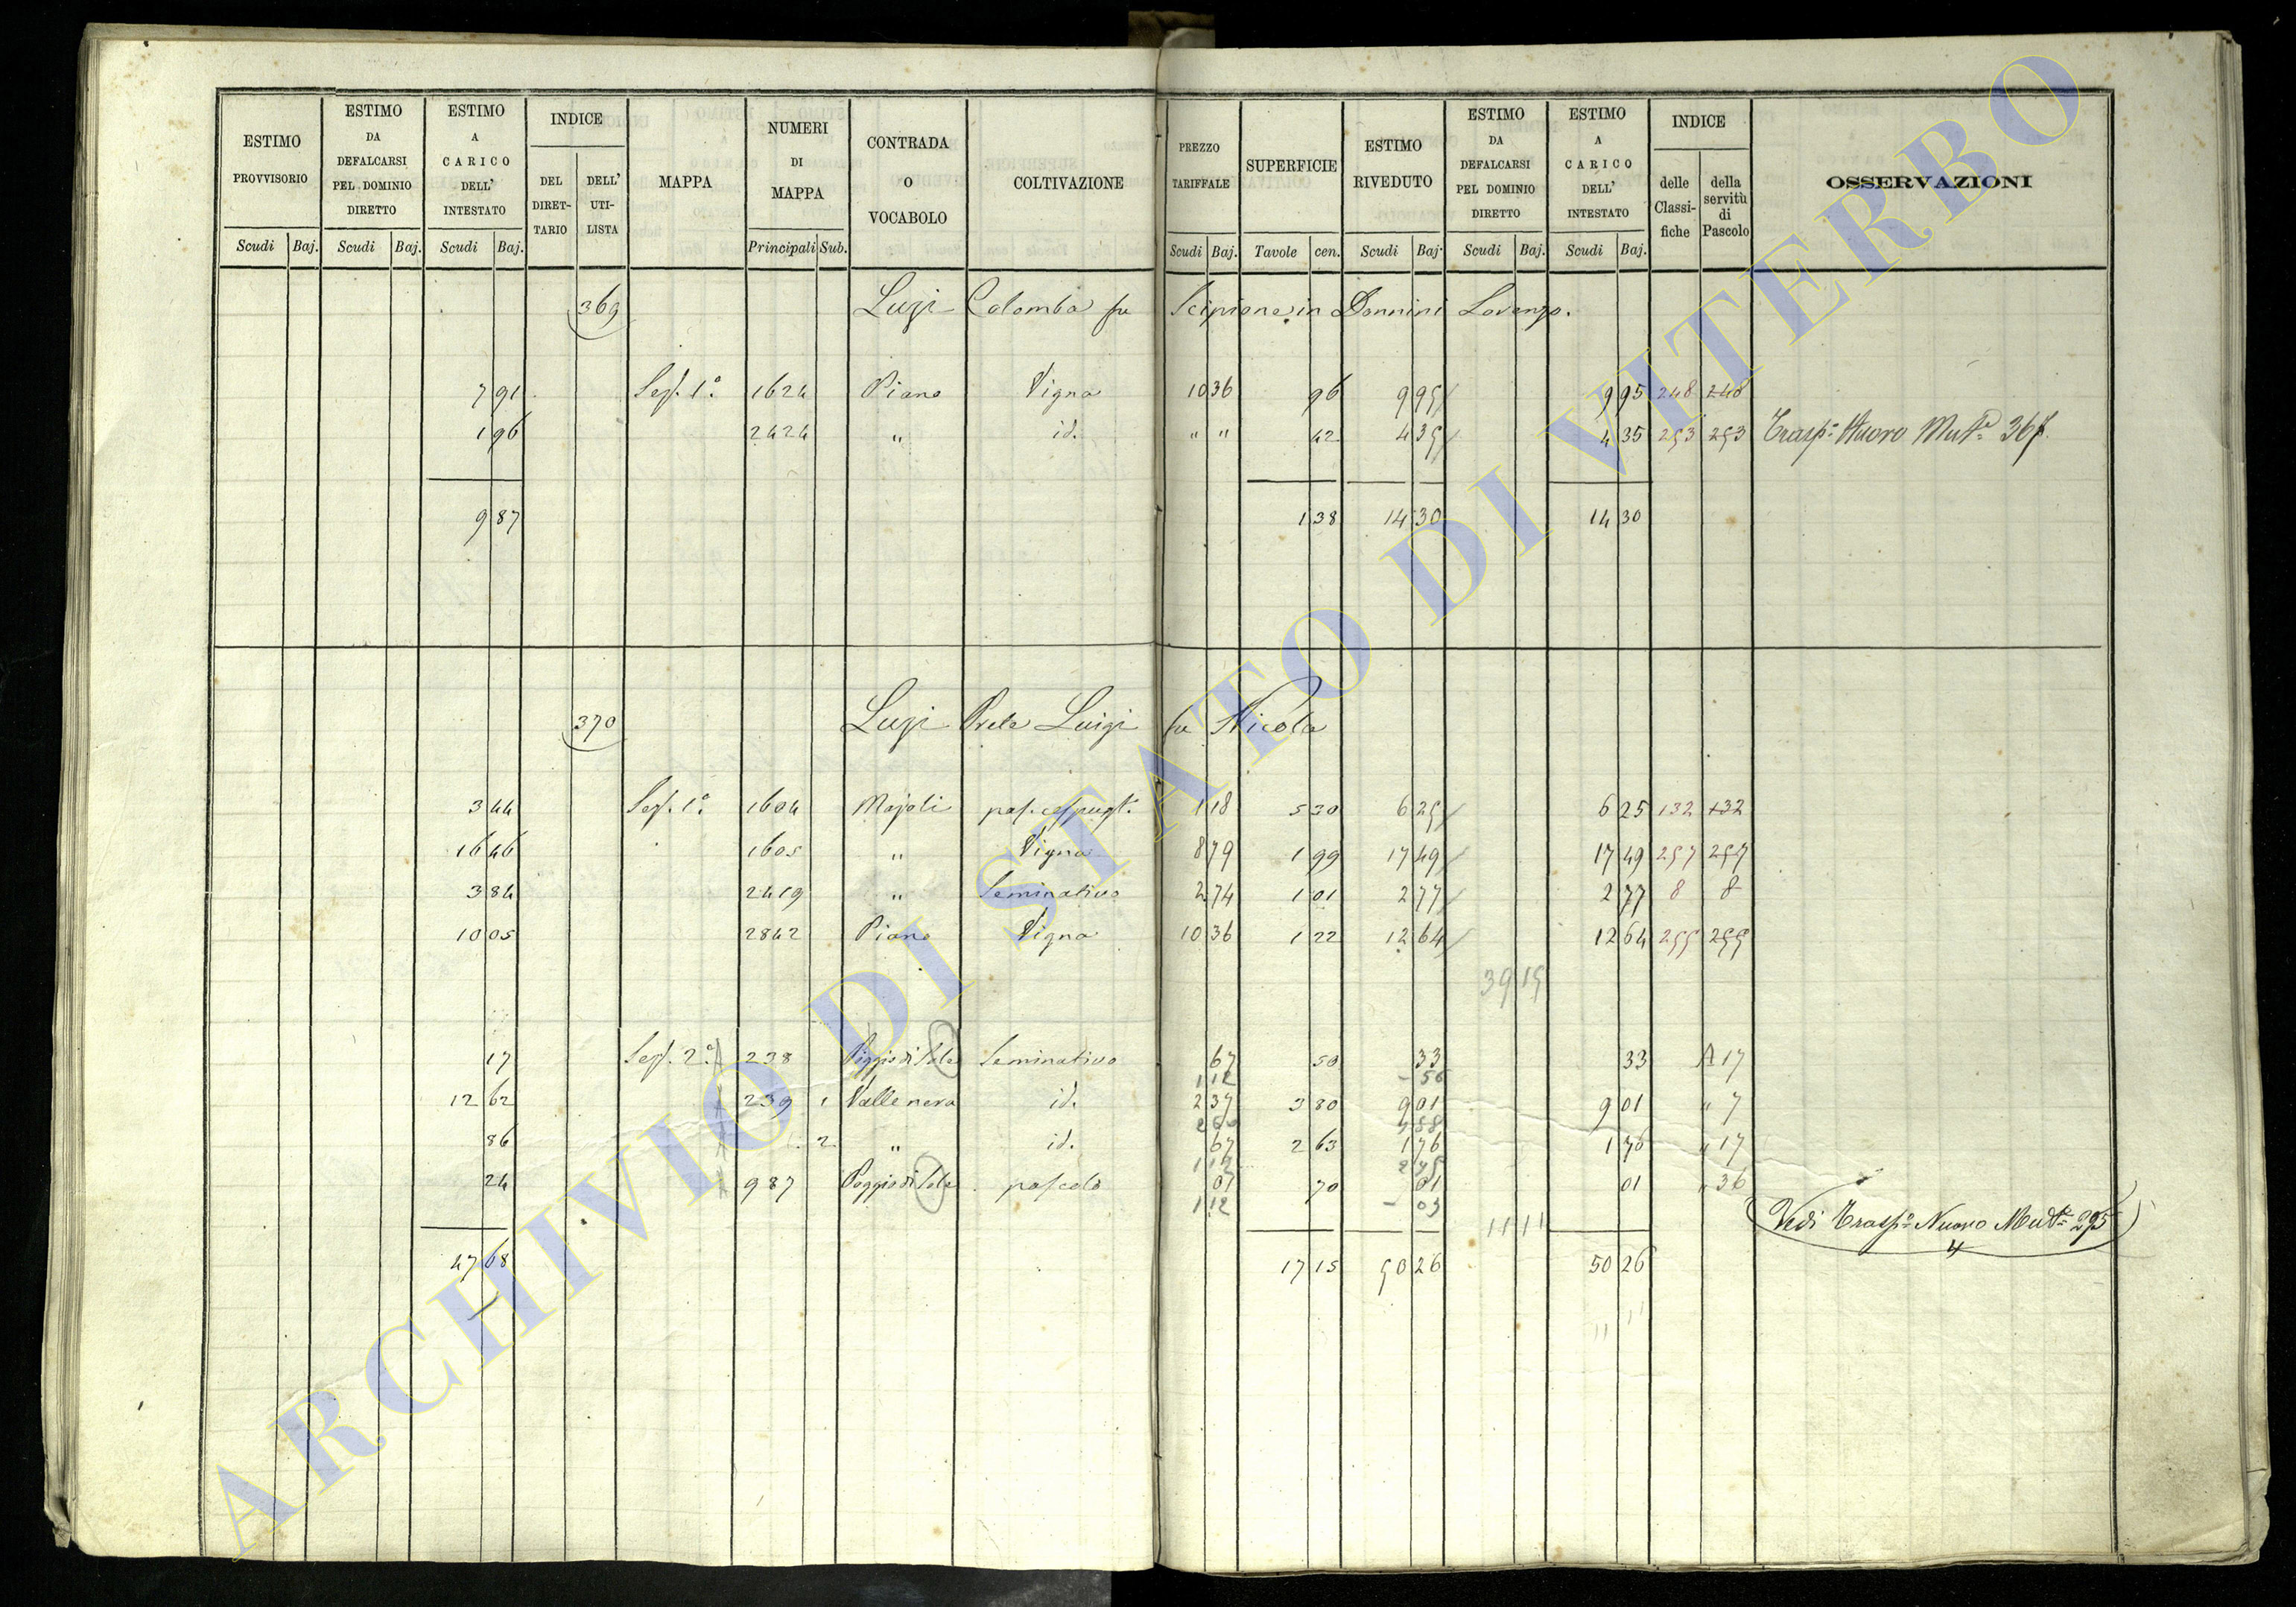 ESTIMO PROVVISORIO | ESTIMO DA DEFALCARSI PEL DOMINIO DIRETTO | ESTIMO A CARICO DELL' INTESTATO | INDICE DEL DIRET-TARIO | DELL' UTI-LISTA | MAPPA | NUMERI DI MAPPA | CONTRADA O VOCABOLO | COLTIVAZIONE | PREZZO TARIFFALE | SUPERFICIE | ESTIMO RIVEDUTO | ESTIMO DA DEFALCARSI PEL DOMINIO DIRETTO | ESTIMO A CARICO DELL' INTESTATO | INDICE delle Classi-fiche | della servitù di Pascolo | OSSERVAZIONI
Scudi Baj. | Scudi Baj. | Scudi Baj. | Principali Sub. | Scudi Baj. | Tavole cen. | Scudi Baj. | Scudi Baj. | Scudi Baj.
369 Luzi Colomba fu Scipione in Donnini Lorenzo.
7 91 Sez. 1ª 1624 Piano Vigna 10 36 96 9 95 9 95 248 248
1 96 2424 " id. " " 42 4 35 4 35 253 253 Trasp.o Nuovo Mut.a 367.
9 87 1 38 14 30 14 30
370 Luzi Prete Luigi fu Nicola
3 44 Sez. 1ª 1604 Majoli pas. cespugt. 1 18 5 30 6 25 6 25 132 132
16 46 1605 " Vigna 8 79 1 99 17 49 17 49 257 257
3 84 2419 " Seminativo 2 74 1 01 2 77 2 77 8 8
10 05 2842 Piano Vigna 10 36 1 22 12 64 12 64 255 255
39 15
17 Sez. 2ª 238 Poggio di Sole Seminativo 67 50 33 33 A 17
1 12 - 56
12 62 239 1 Valle nera id. 2 37 3 80 9 01 9 01 " 7
86 2 " id. 67 2 63 1 76 1 76 " 17
24 987 Poggio di Sole pascolo 07 70 01 01 " 36
1 12 - 03
11 11
Vedi Trasp.o Nuovo Mut.a 295
4
47 68 17 15 50 26 50 26
ARCHIVIO DI STATO DI VITERBO